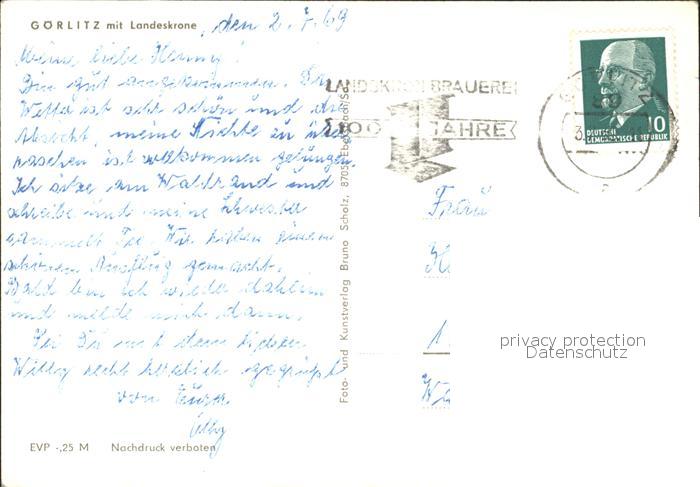 GÖRLITZ mit Landeskrone, den 2.7.69
Meine liebe Henny!
Bin gut angekommen. Das
Wetter ist sehr schön und die
Absicht, meine Nichte zu über-
raschen ist vollkommen gelungen.
Ich sitze am Waldrand und
schreibe und meine Schwester
sammelt Tee. Wir haben einen
schönen Ausflug gemacht.
Bald bin ich wieder daheim
und melde mich dann.
Sei Du mit dem lieben
Willy recht herzlich gegrüßt
von Eurer
EVP -,25 M Nachdruck verboten
Foto- und Kunstverlag Bruno Scholz, 8705 Ebersbach/Sa.
LANDSKRON BRAUEREI
100 JAHRE
GÖRLITZ
89
3.
10
DEUTSCHE
DEMOKRATISCHE REPUBLIK
Frau
H
1
privacy protection
Datenschutz